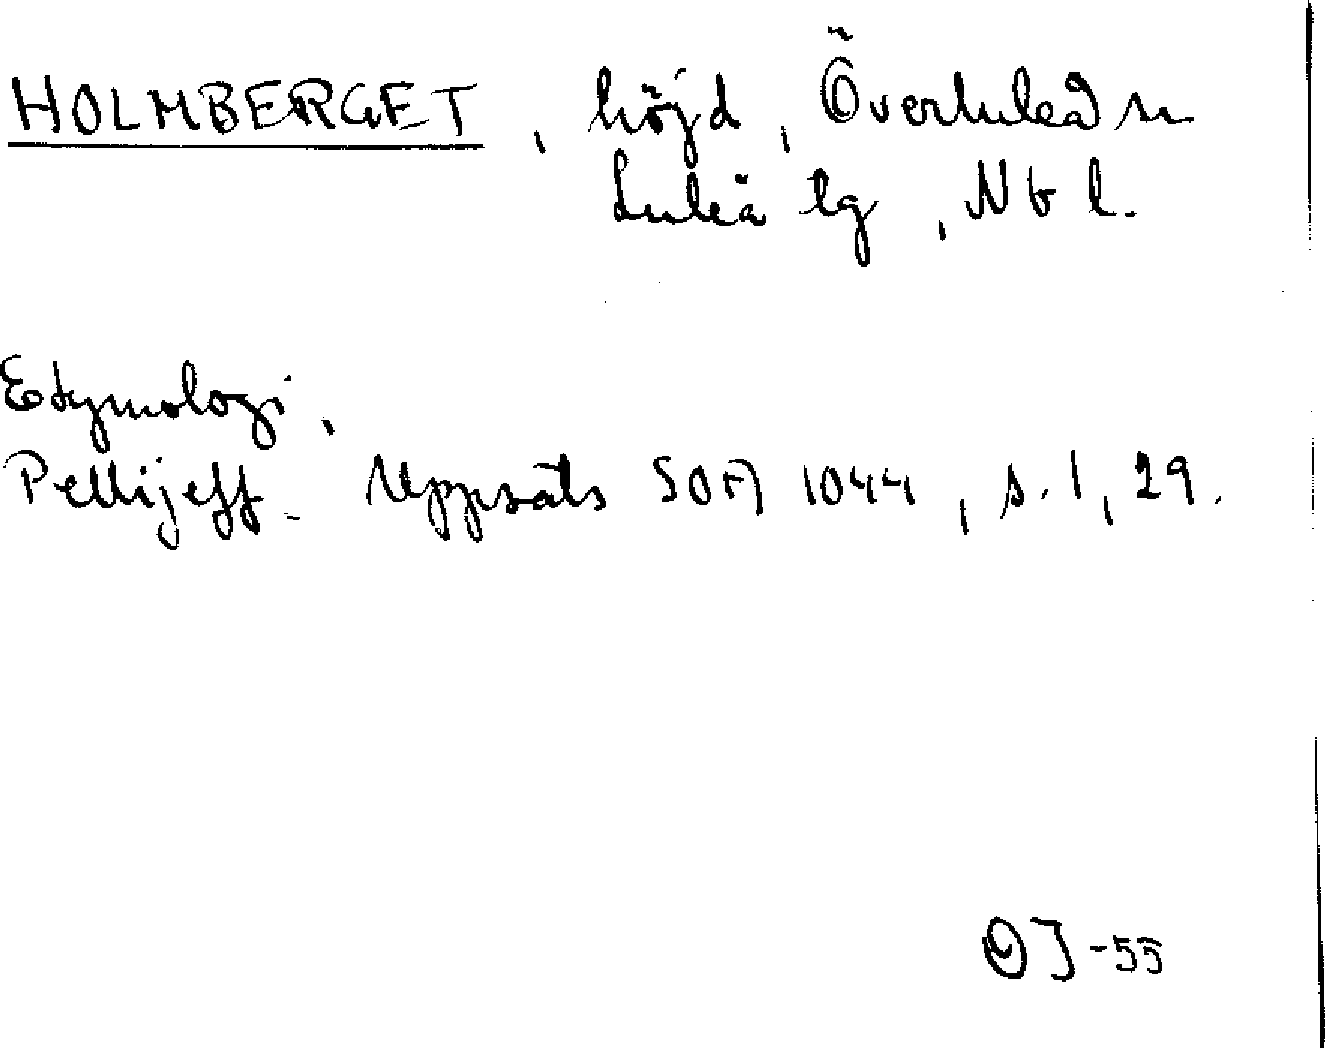 HOLMBERGET, höjd, Överluleå sn
Luleå lg, Nb l.
Etymologi.
Pellijeff. Uppsats SOFA 1044, s. 1, 29.
OJ-55